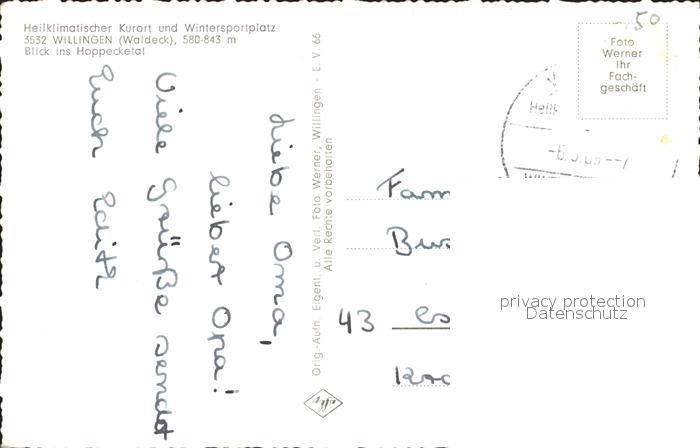 Heilklimatischer Kurort und Wintersportplatz
3532 WILLINGEN (Waldeck), 580-843 m
Blick ins Hoppecketal
Liebe Oma,
lieber Opa!
Viele Grüße sendet
Euch Edith
Orig.-Aufn. Eigent. u. Verl. Foto Werner, Willingen - E. V. 66
Alle Rechte vorbehalten
-50
Foto
Werner
Ihr
Fach-
geschäft
Fam
43
privacy protection
Datenschutz